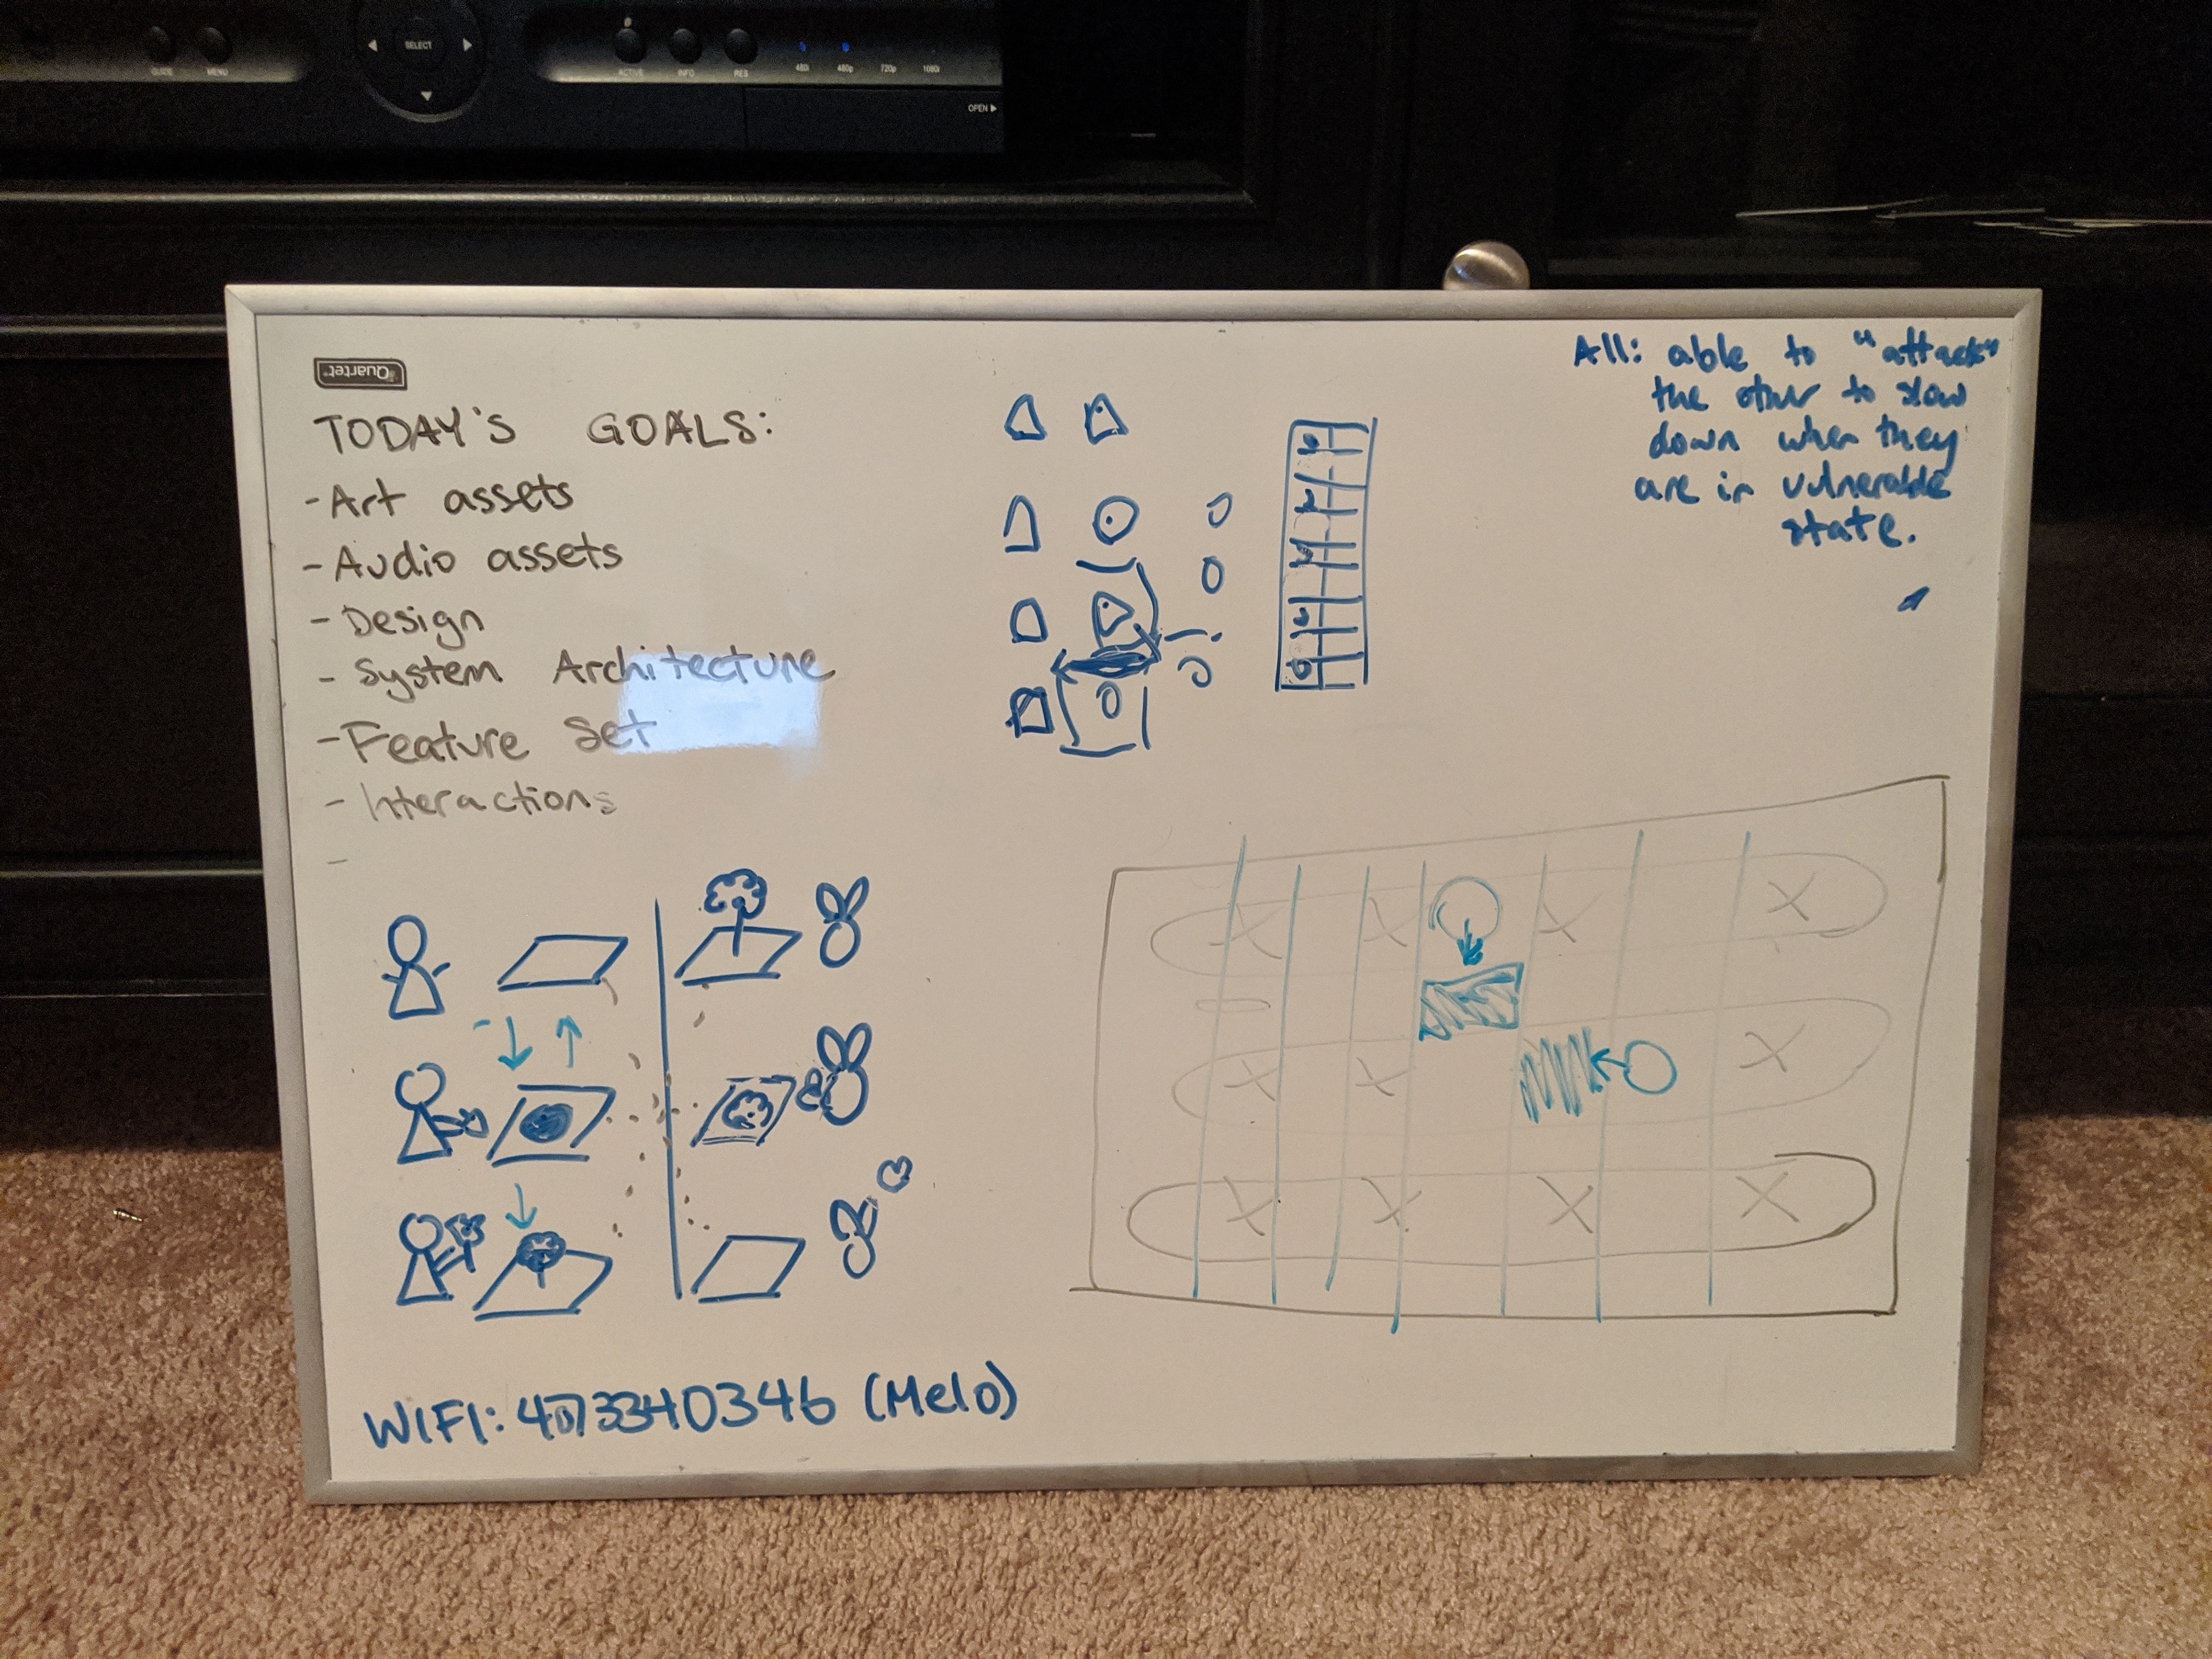 GUIDE MENU
SELECT
ACTIVE INFO RES 480i 480p 720p 1080i
OPEN
Quartet
TODAY'S GOALS:
- Art assets
- Audio assets
- Design
- System Architecture
- Feature Set
- Interactions
-
All: able to "attack"
the other to slow
down when they
are in vulnerable
state.
X X X X
X X X
X X X X
WIFI: (Melo)